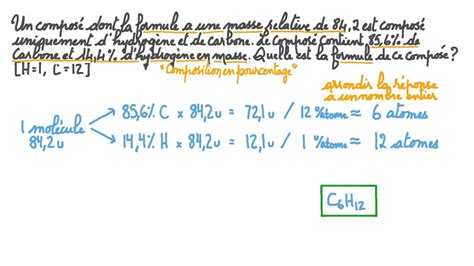 Un composé dont la formule a une masse relative de 84,2 est composé
uniquement d'hydrogène et de carbone. Le composé contient 85,6% de
carbone et 14,4% d'hydrogène en masse. Quelle est la formule de ce composé?
[H=1, C=12] "Composition en pourcentage"
arrondir la réponse
à un nombre entier
85,6% C × 84,2u = 72,1u / 12 u/atome ≈ 6 atomes
1 molécule
84,2u
14,4% H × 84,2u = 12,1u / 1 u/atome ≈ 12 atomes
C₆H₁₂